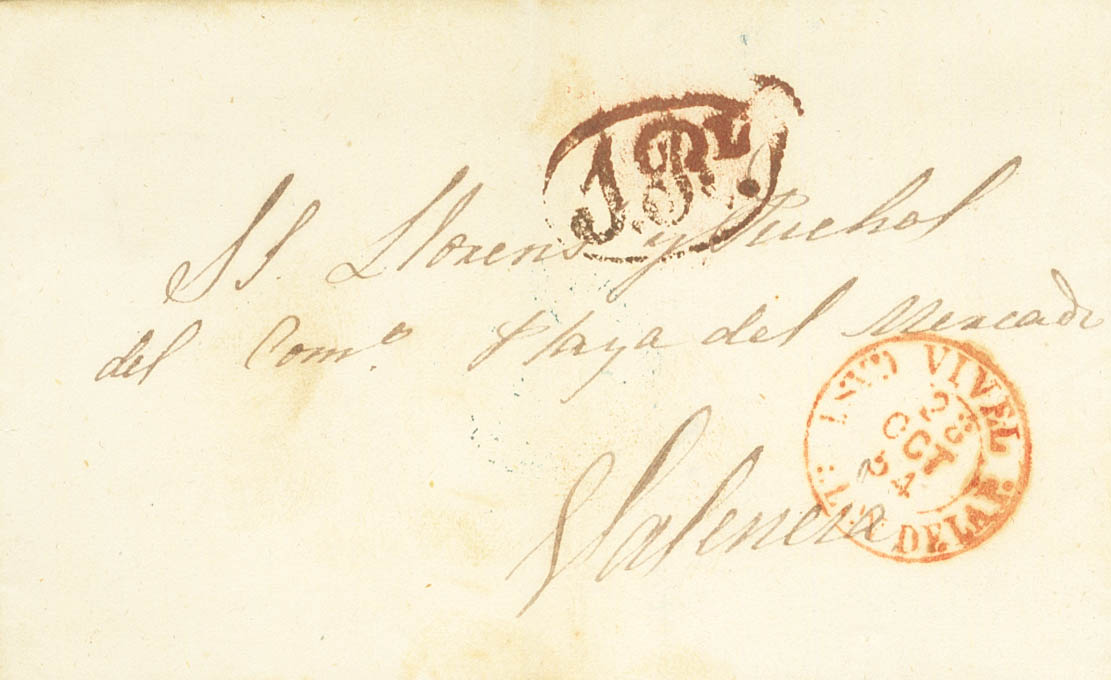 1Rl.
SS. Llorens y Puchol
del Comº. Plaza del Mercado
Valencia
VIVEL
28
OCT
54
DE LA R.